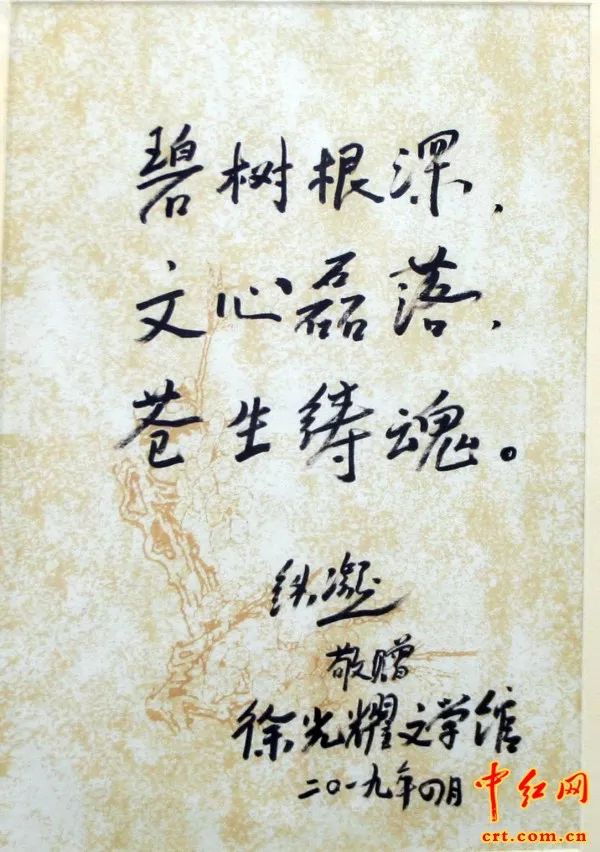 碧树根深,
文心磊落,
苍生铸魂。
铁凝
敬赠
徐光耀文学馆
二〇一九年四月
中红网
crt.com.cn